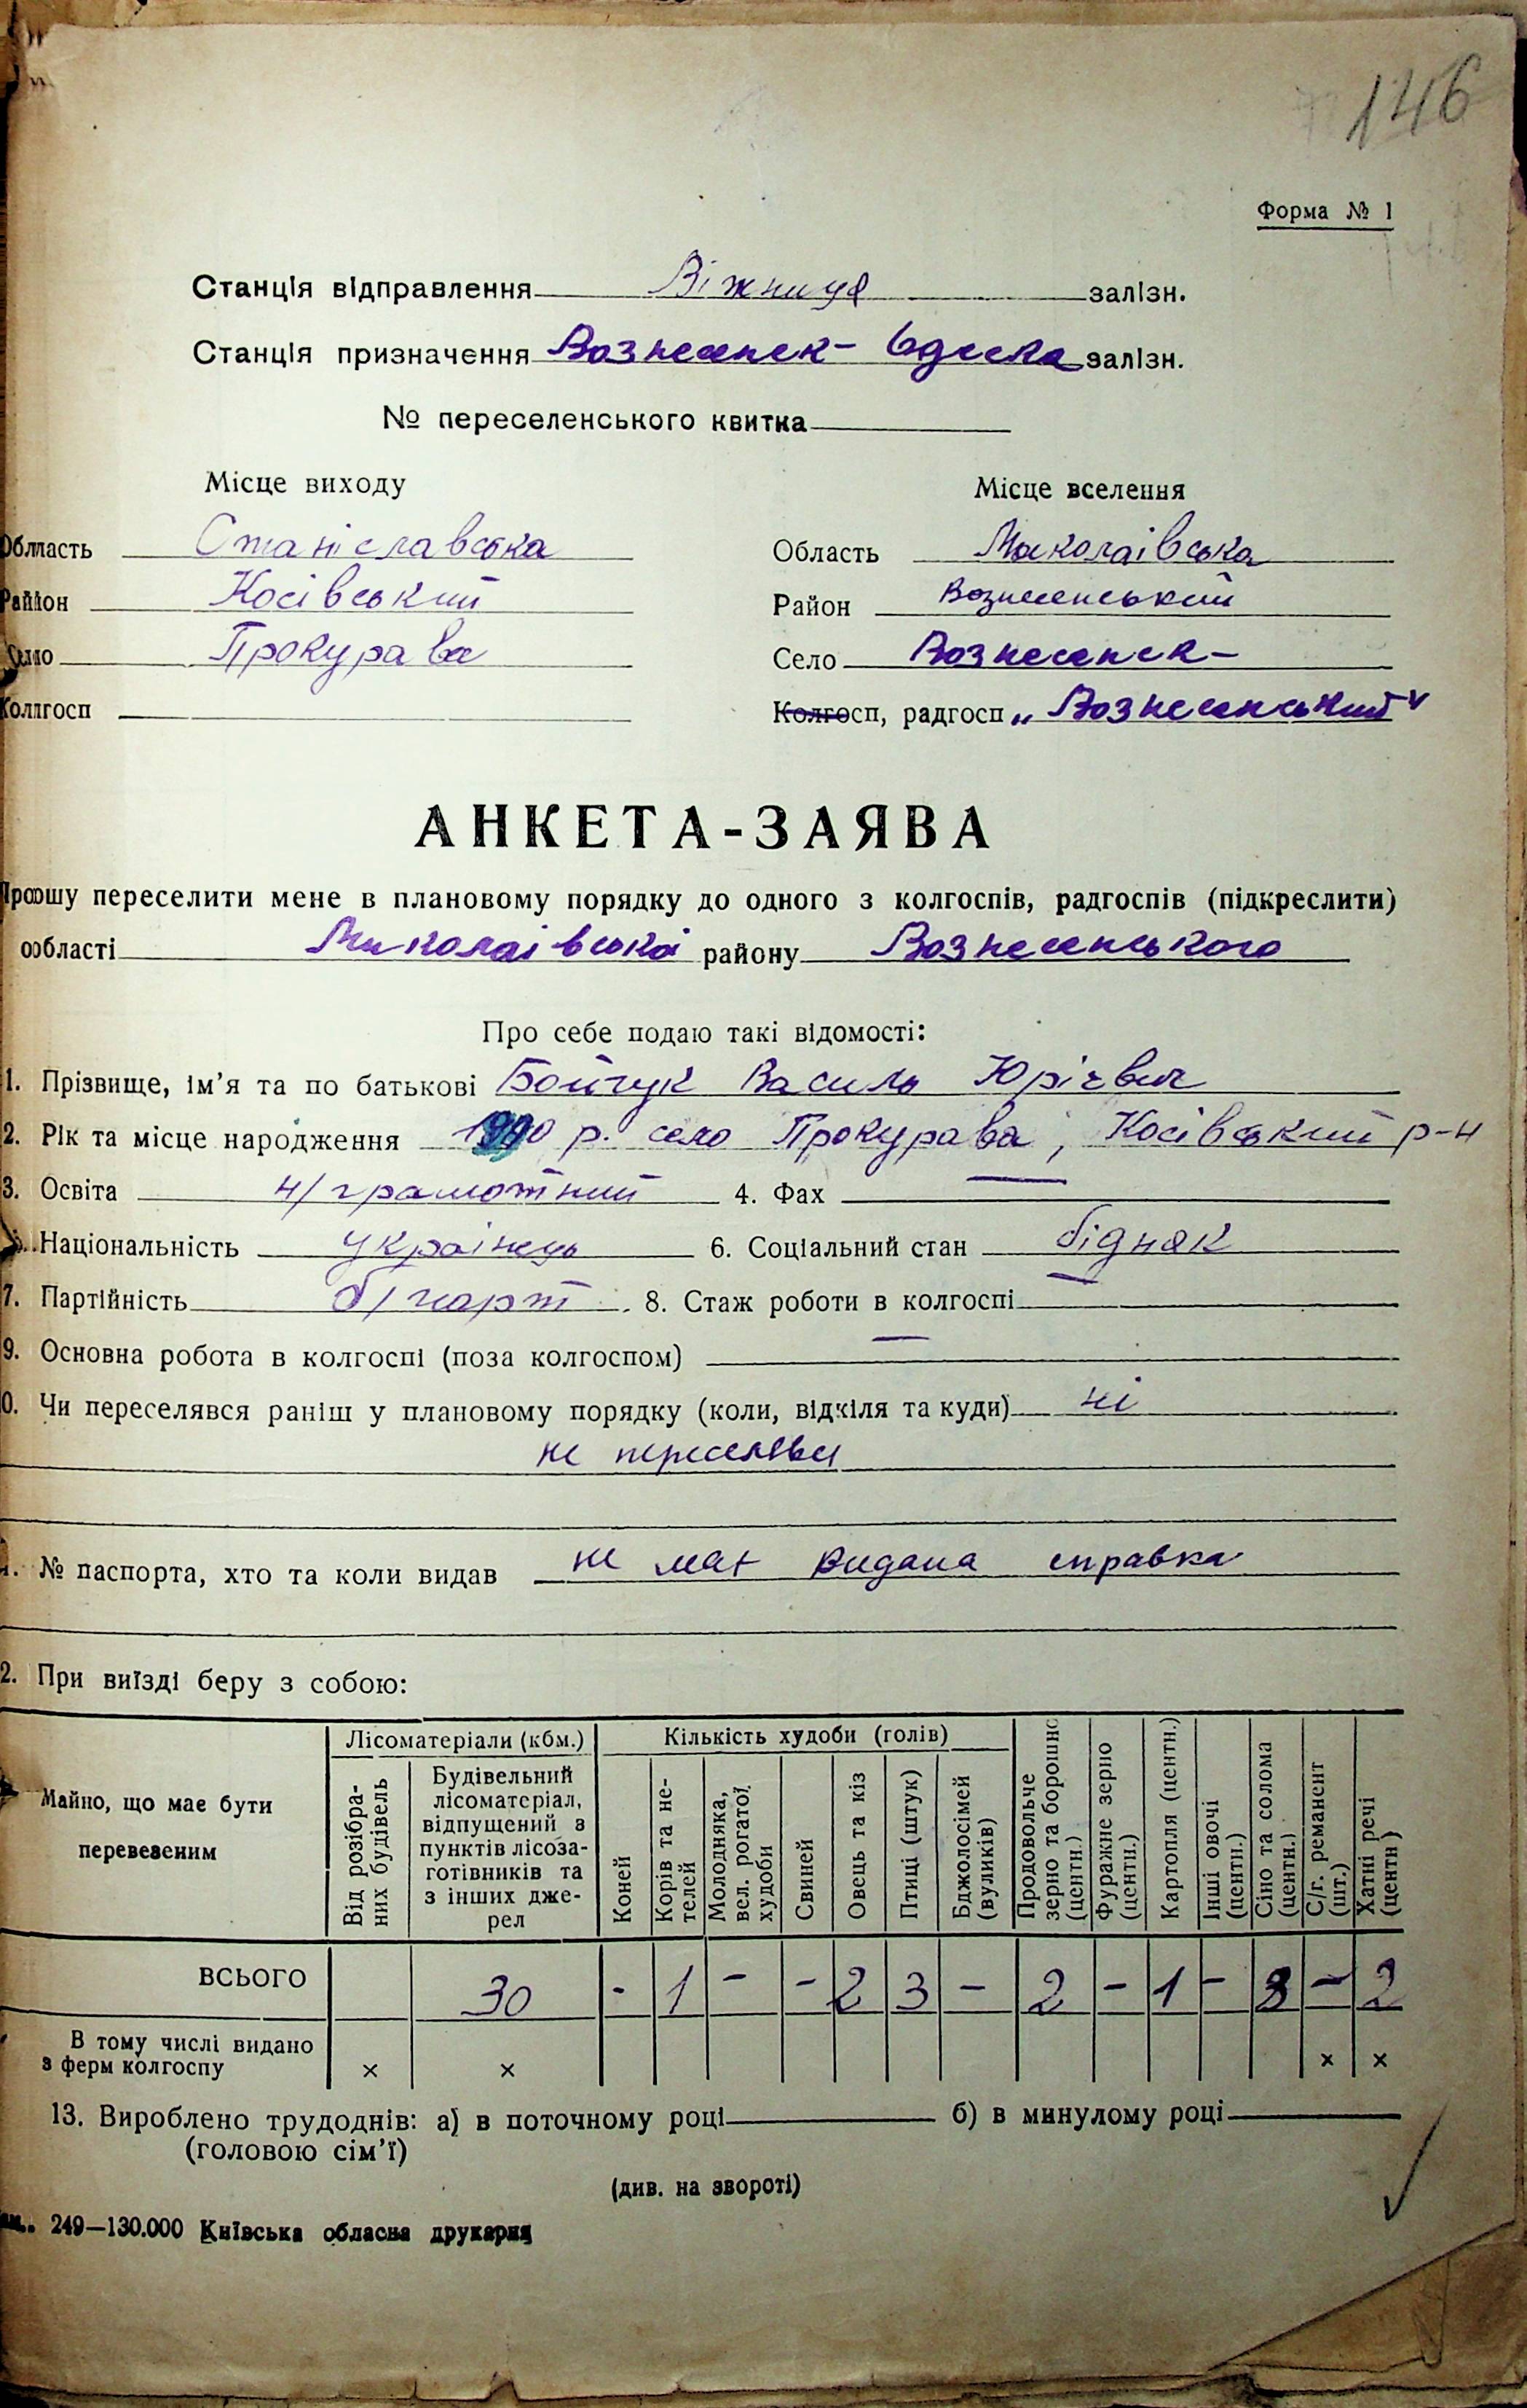 146
Форма № 1
Станція відправлення Віжниця залізн.
Станція призначення Вознесенск - Одеська залізн.
№ переселенського квитка
Місце виходу
Місце вселення
Область Станіславська
Область Миколаївська
Район Косівський
Район Вознесенський
Село Прокурава
Село Вознесенск-
Колгосп
Колгосп, радгосп „Вознесенський"
АНКЕТА-ЗАЯВА
Прошу переселити мене в плановому порядку до одного з колгоспів, радгоспів (підкреслити)
області Миколаївської району Вознесенського
Про себе подаю такі відомості:
1. Прізвище, ім'я та по батькові Бойчук Василь Юрієвич
2. Рік та місце народження р. село Прокурава, Косівський р-н
3. Освіта н/грамотний 4. Фах —
Національність українець 6. Соціальний стан бідняк
7. Партійність б/парт 8. Стаж роботи в колгоспі —
9. Основна робота в колгоспі (поза колгоспом) —
0. Чи переселявся раніш у плановому порядку (коли, відкіля та куди) ні
не переселявся
№ паспорта, хто та коли видав не має видана справка
2. При виїзді беру з собою:
Майно, що має бути перевезеним
Лісоматеріали (кбм.)
Від розібраних будівель
Будівельний лісоматеріал, відпущений з пунктів лісозаготівників та з інших джерел
Кількість худоби (голів)
Коней
Корів та нетелей
Молодняка, вел. рогатої худоби
Свиней
Овець та кіз
Птиці (штук)
Бджолосімей (вуликів)
Продовольче зерно та борошно (центн.)
Фуражне зерно (центн.)
Картопля (центн.)
Інші овочі (центн.)
Сіно та солома (центн.)
С/г. реманент (шт.)
Хатні речі (центн)
ВСЬОГО 30 - 1 - - 2 3 - 2 - 1 - 3 - 2
В тому числі видано з ферм колгоспу × × × ×
13. Вироблено трудоднів: а) в поточному році б) в минулому році
(головою сім'ї)
(див. на звороті)
249—130.000 Київська обласна друкарня